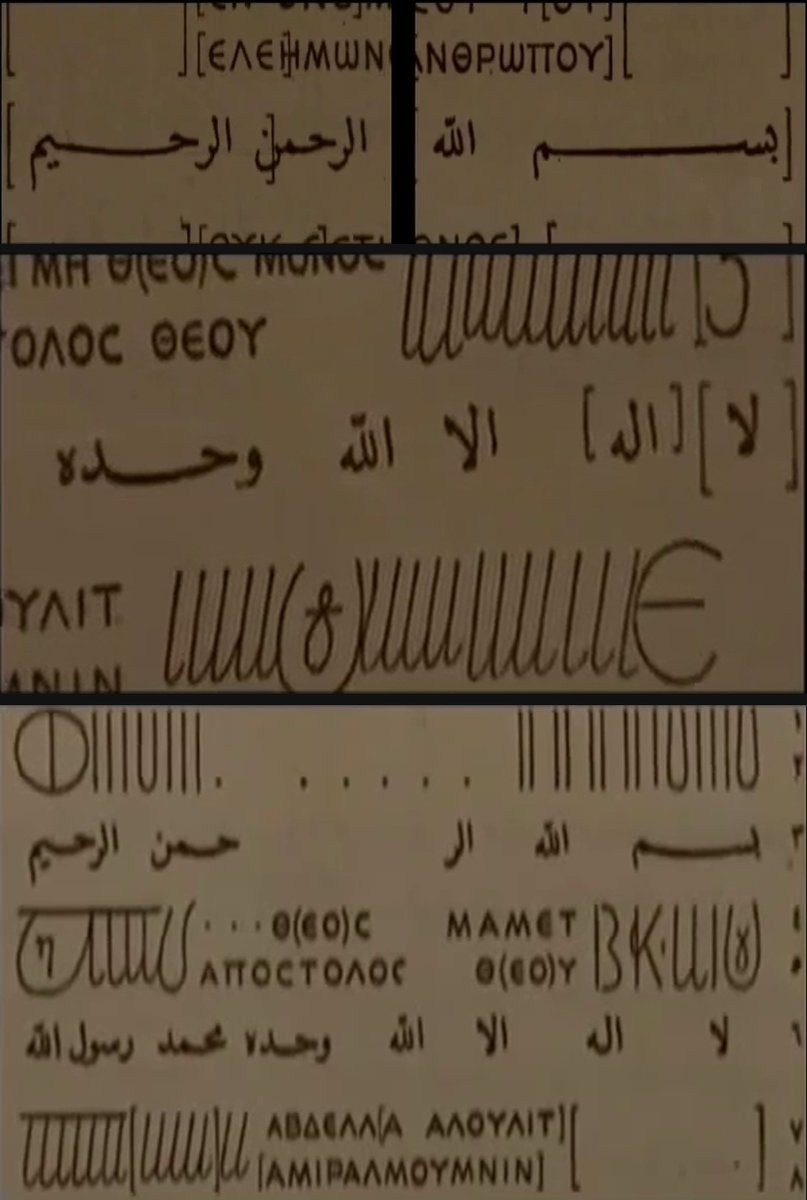 [ΕΛΕΗ]ΜΩΝ ΑΝΘΡΩΠΟΥ][
[بســـم الله الرحمن] الرحـــيم]
ΜΗ Θ(ΕΟ)C ΜΟΝΟC
ΟΛΟC ΘΕΟΥ
[لا][اله] الا الله وحـــده
ΥΛΙΤ
بـــسم الله الر حمن الرحيم
· · · Θ(ΕΟ)C ΜΑΜΕΤ
ΑΠΟCΤΟΛΟC Θ(ΕΟ)Υ
لا اله الا الله وحده محمد رسول الله
ΑΒΔΕΛΛ[Α ΑΛΟΥΛΙΤ]
[ΑΜΙΡΑΛΜΟΥΜΝΙΝ]